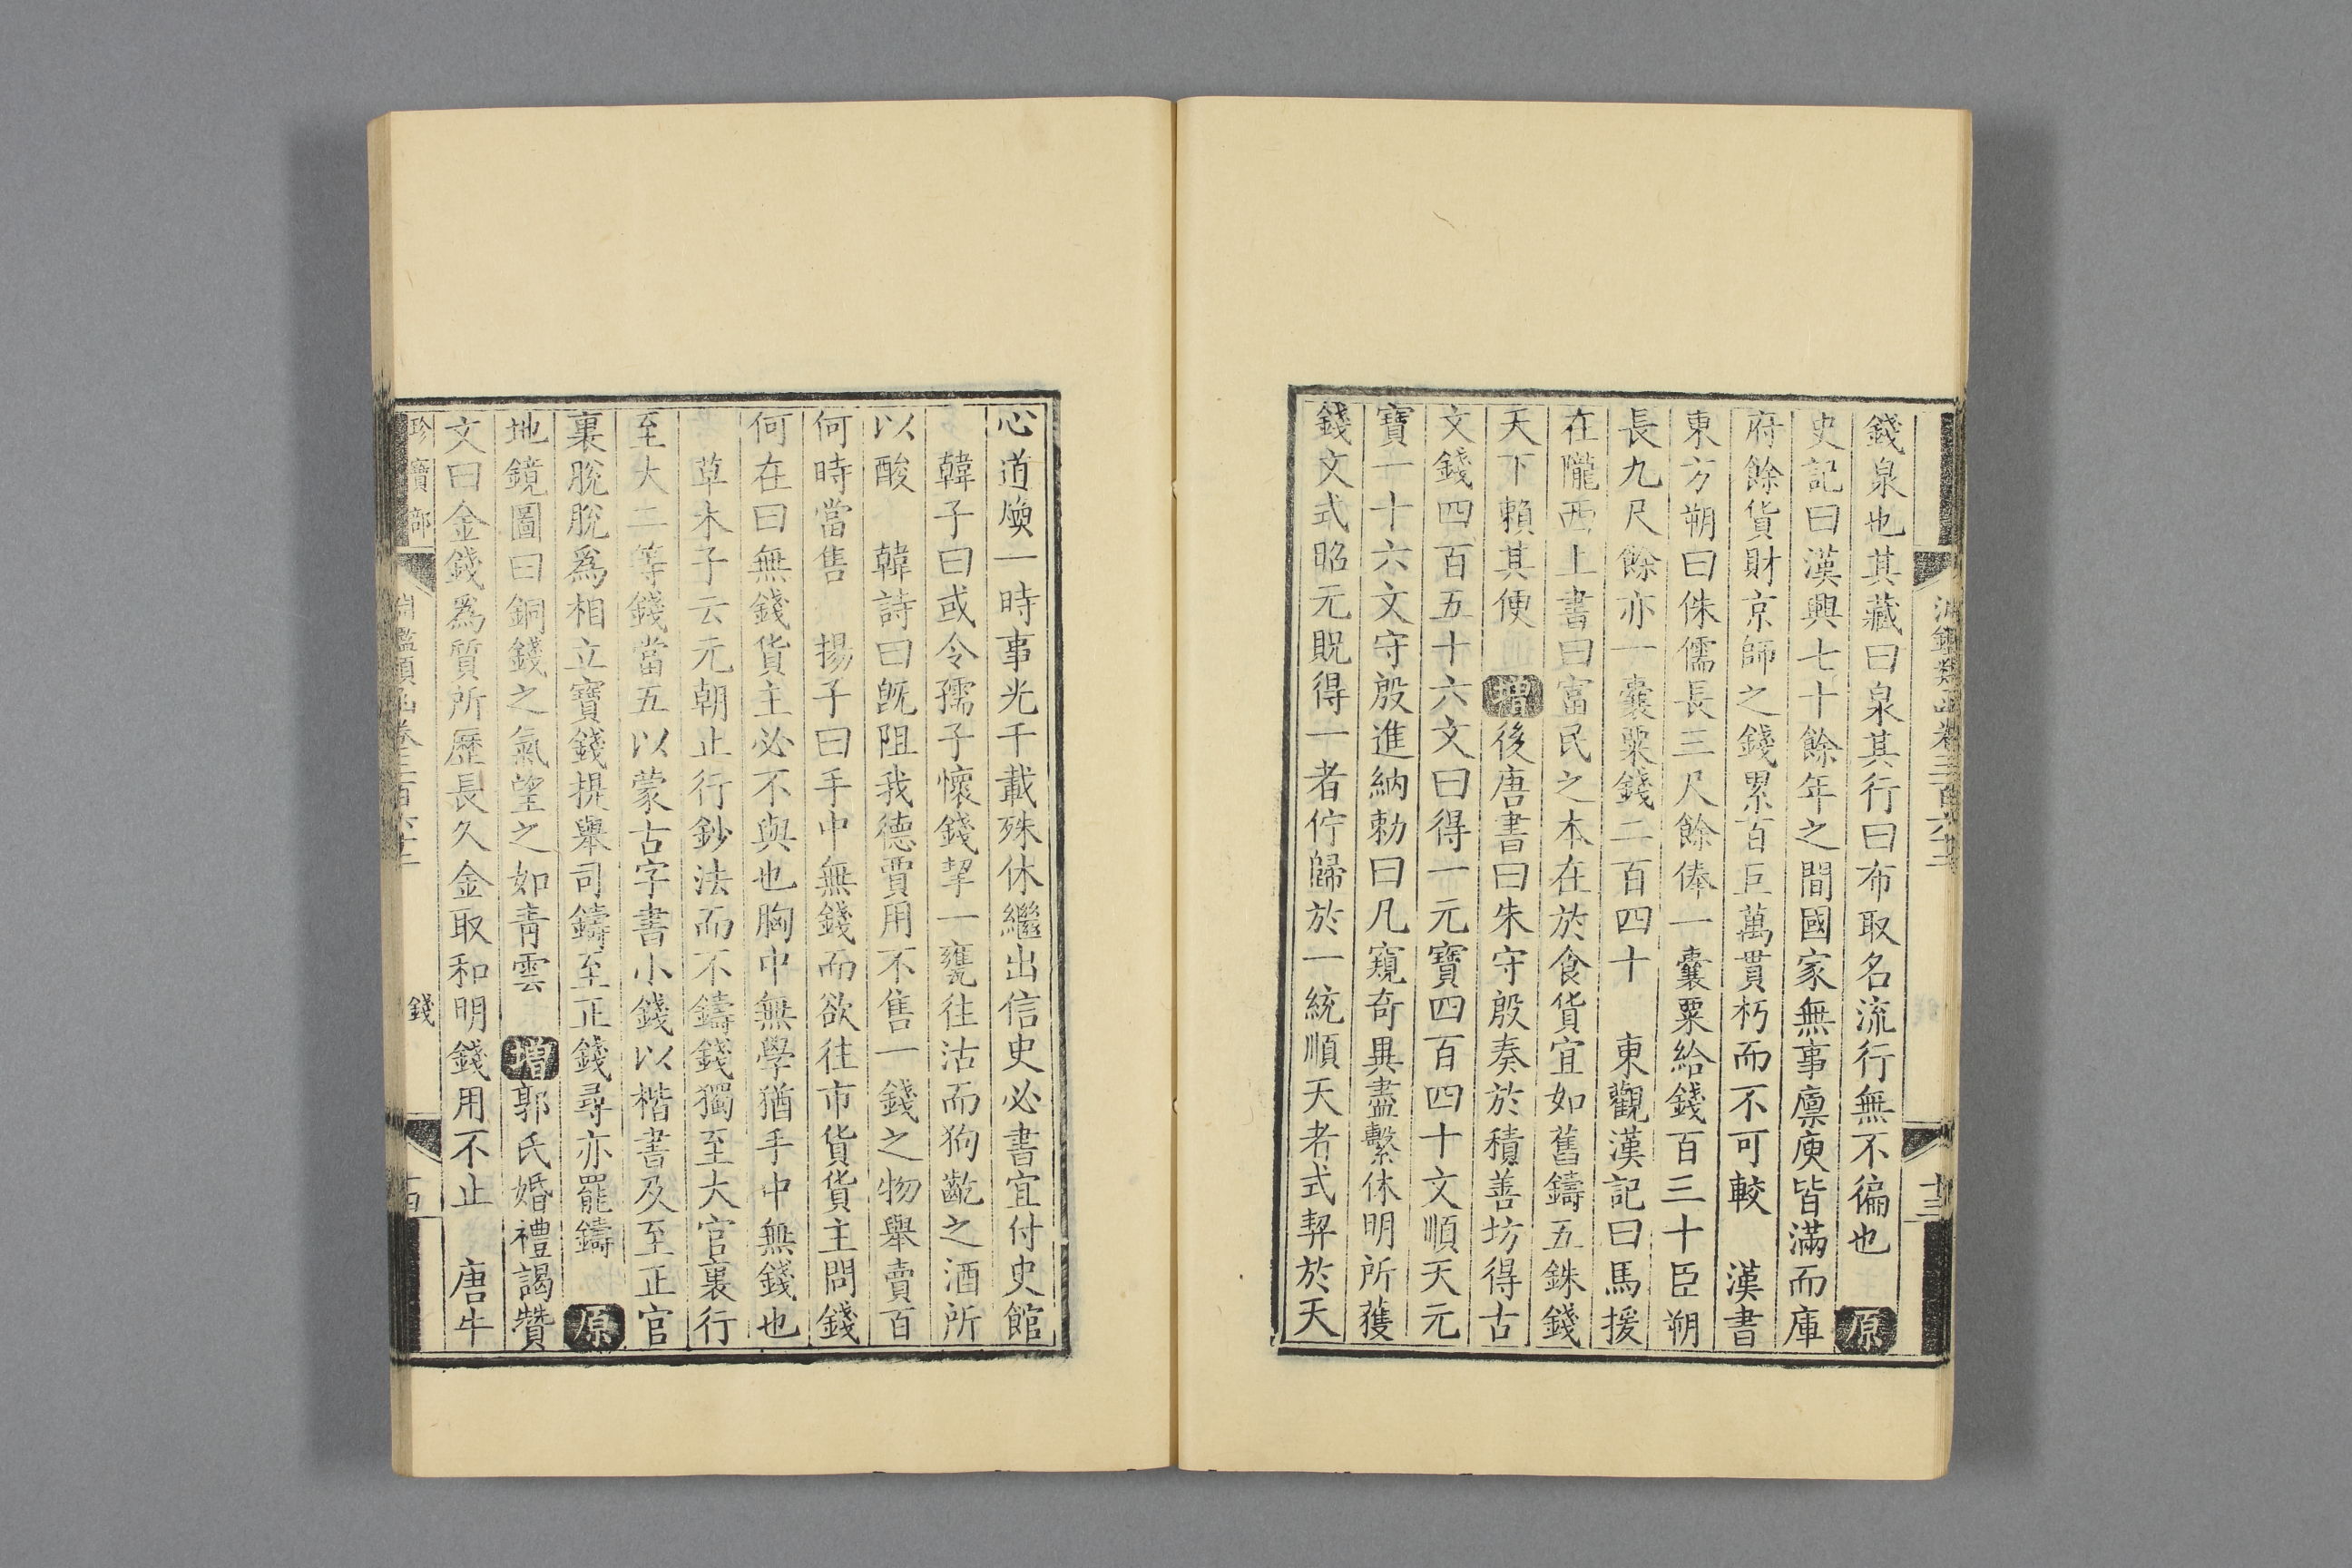 錢泉也其藏曰泉其行曰布取名流行無不徧也 原
史記曰漢興七十餘年之間國家無事廩庾皆滿而庫
府餘貨財京師之錢累百巨萬貫朽而不可較 漢書
東方朔曰侏儒長三尺餘俸一囊粟給錢百三十臣朔
長九尺餘亦一囊粟錢二百四十 東觀漢記曰馬援
在隴西上書曰富民之本在於食貨宜如舊鑄五銖錢
天下賴其便 增後唐書曰朱守殷奏於積善坊得古
文錢四百五十六文曰得一元寶四百四十文順天元
寶一十六文守殷進納勅曰凡窺奇異盡繫休明所獲
錢文式昭元貺得一者佇歸於一統順天者式契於天
心道煥一時事光千載殊休繼出信史必書宜付史館
韓子曰或令孺子懷錢挈一甕往沽而狗齕之酒所
以酸 韓詩曰旣阻我德賈用不售一錢之物舉賣百
何時當售 揚子曰手中無錢而欲往市貨貨主問錢
何在曰無錢貨主必不與也胸中無學猶手中無錢也
草木子云元朝止行鈔法而不鑄錢獨至大官裏行
至大二等錢當五以蒙古字書小錢以楷書及至正官
裏脫脫爲相立寶錢提舉司鑄至正錢尋亦罷鑄 原
地鏡圖曰銅錢之氣望之如青雲 增郭氏婚禮謁贊
文曰金錢爲質所歷長久金取和明錢用不止 唐牛
珍寶部 錢